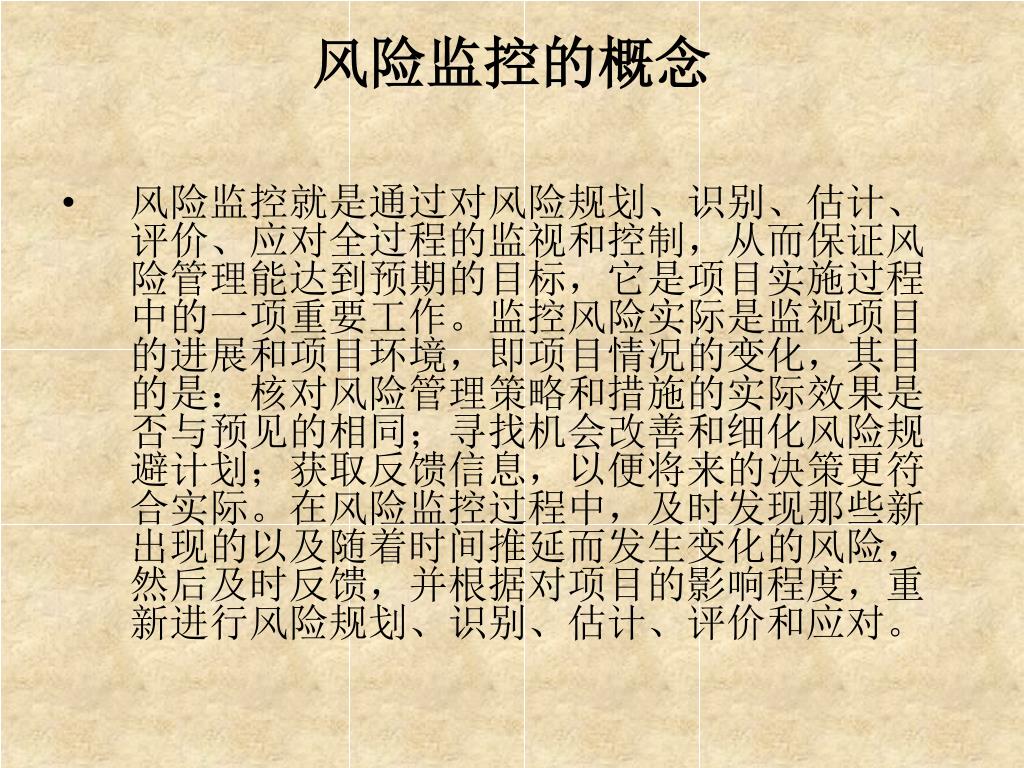 风险监控的概念
• 风险监控就是通过对风险规划、识别、估计、
评价、应对全过程的监视和控制，从而保证风
险管理能达到预期的目标，它是项目实施过程
中的一项重要工作。监控风险实际是监视项目
的进展和项目环境，即项目情况的变化，其目
的是：核对风险管理策略和措施的实际效果是
否与预见的相同；寻找机会改善和细化风险规
避计划；获取反馈信息，以便将来的决策更符
合实际。在风险监控过程中，及时发现那些新
出现的以及随着时间推延而发生变化的风险，
然后及时反馈，并根据对项目的影响程度，重
新进行风险规划、识别、估计、评价和应对。